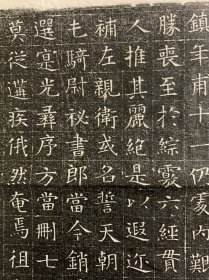 鎮年甫十一仍處內艱
勝喪至於綜覈六經貫
人推其麗絕是以遐迩
補左親衛或名誓天朝
屯騎尉秘書郎當今銷
選寔光彝序方當刪七
莫從遘疾俄然奄焉徂